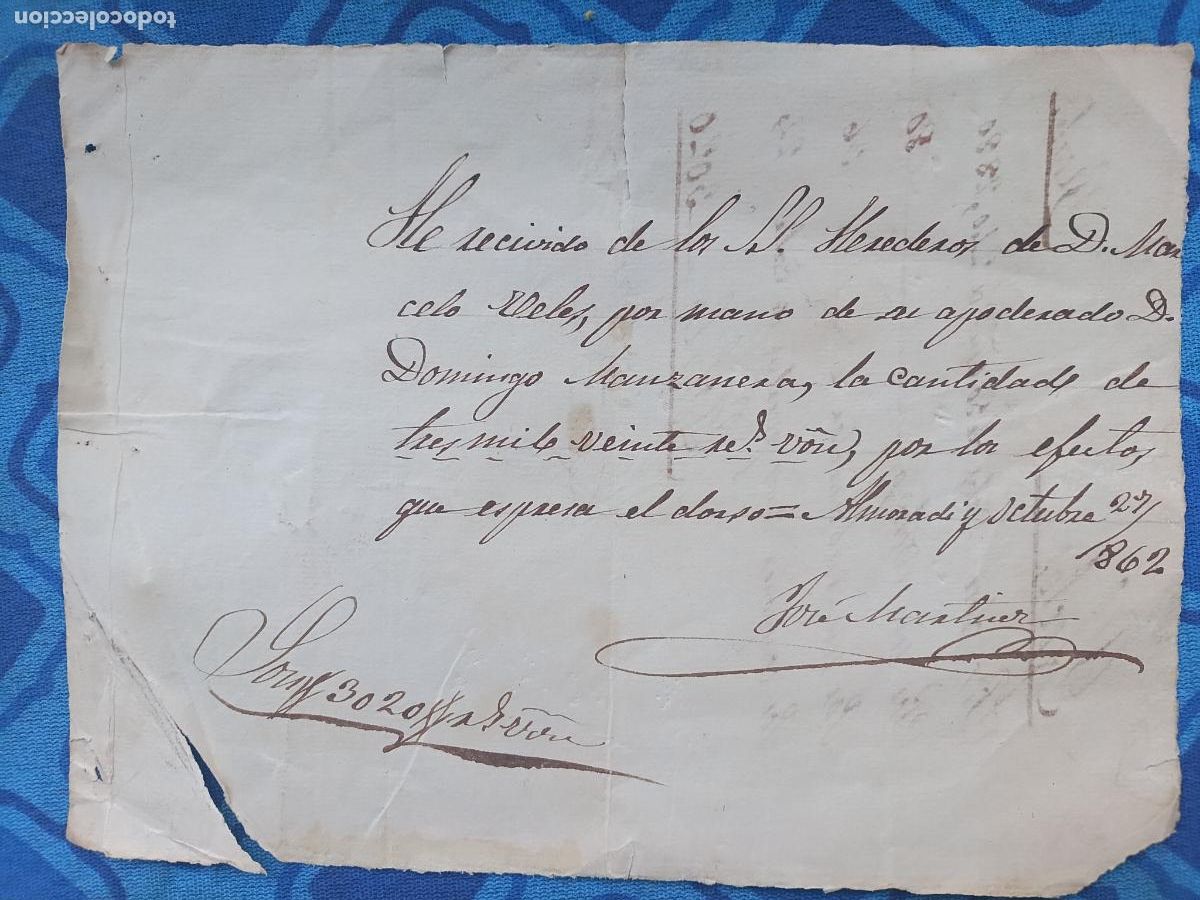 todocoleccion
He recivido de los SS. Herederos de D. Mar
celo Veles, por mano de su apoderado D.
Domingo Manzanera, la cantidad de
tres mil veinte rs. von, por los efectos
que espresa el dorso = Almoradi y Octubre 27/
1862
José Martinez
Son 3020 rs von
3020